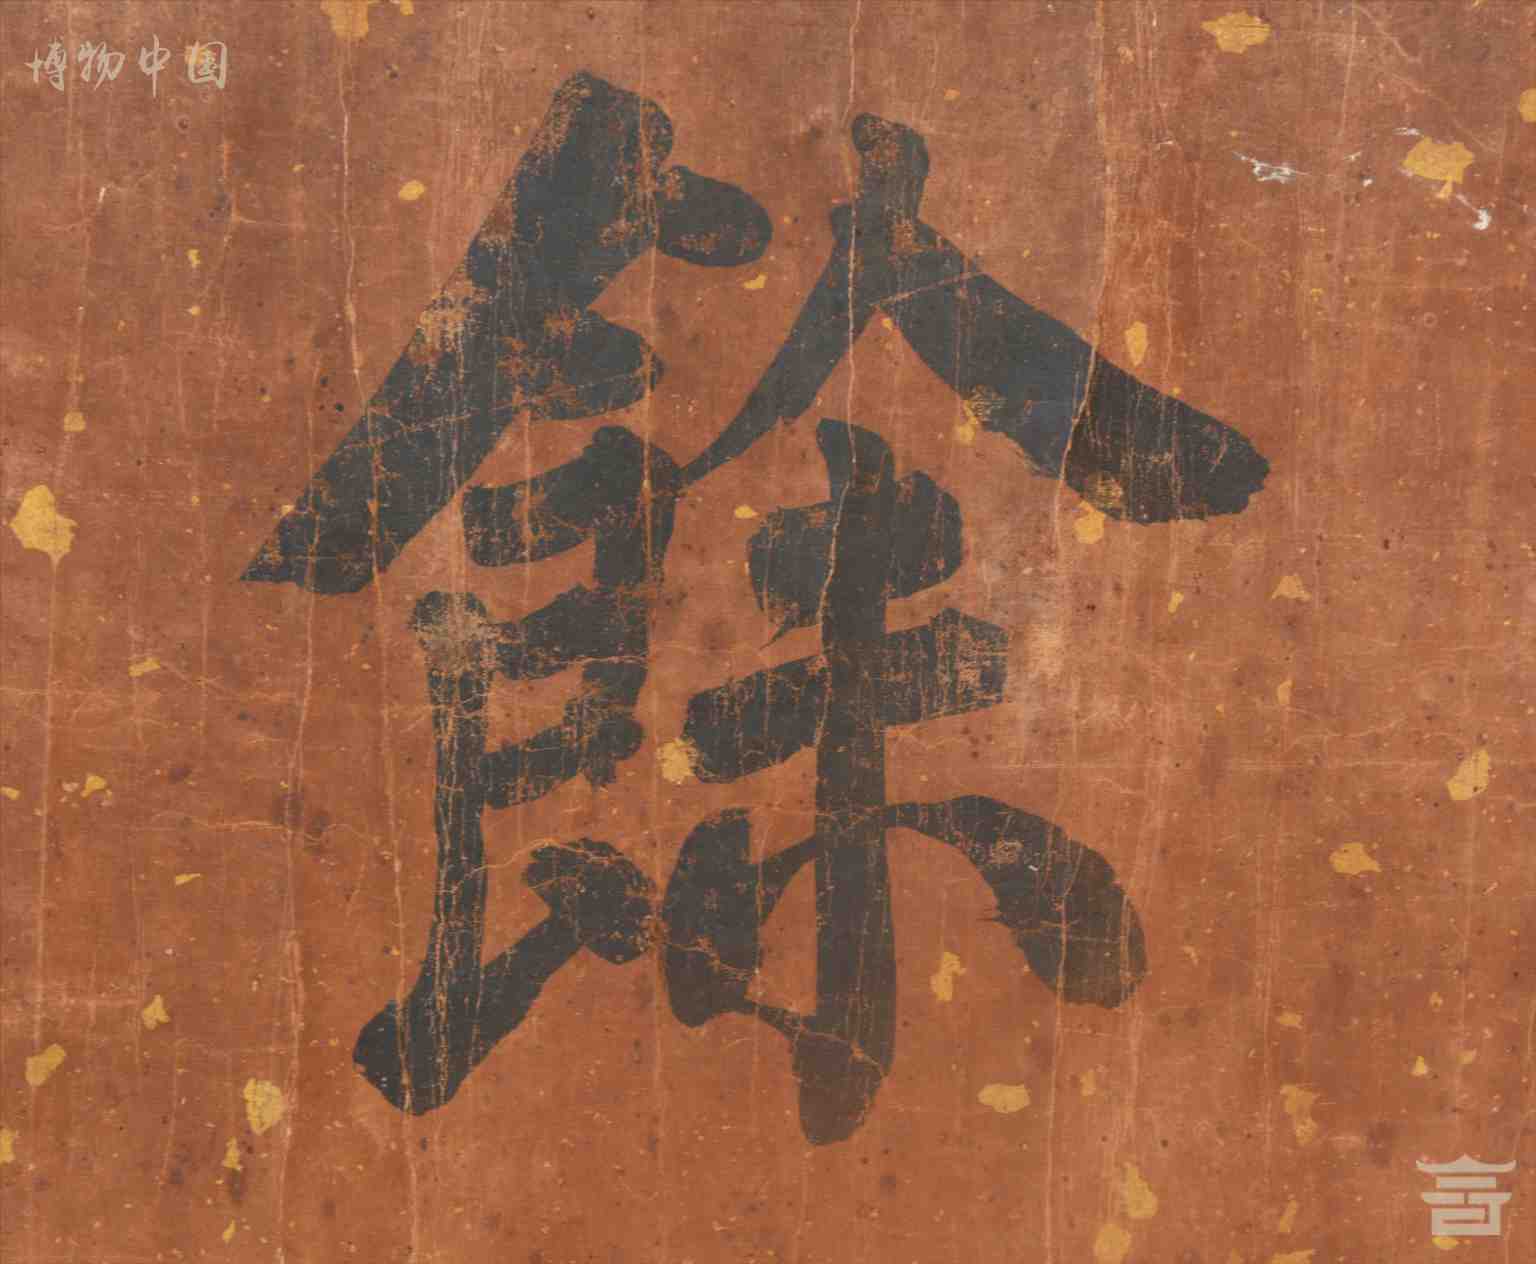 博物中国
餘